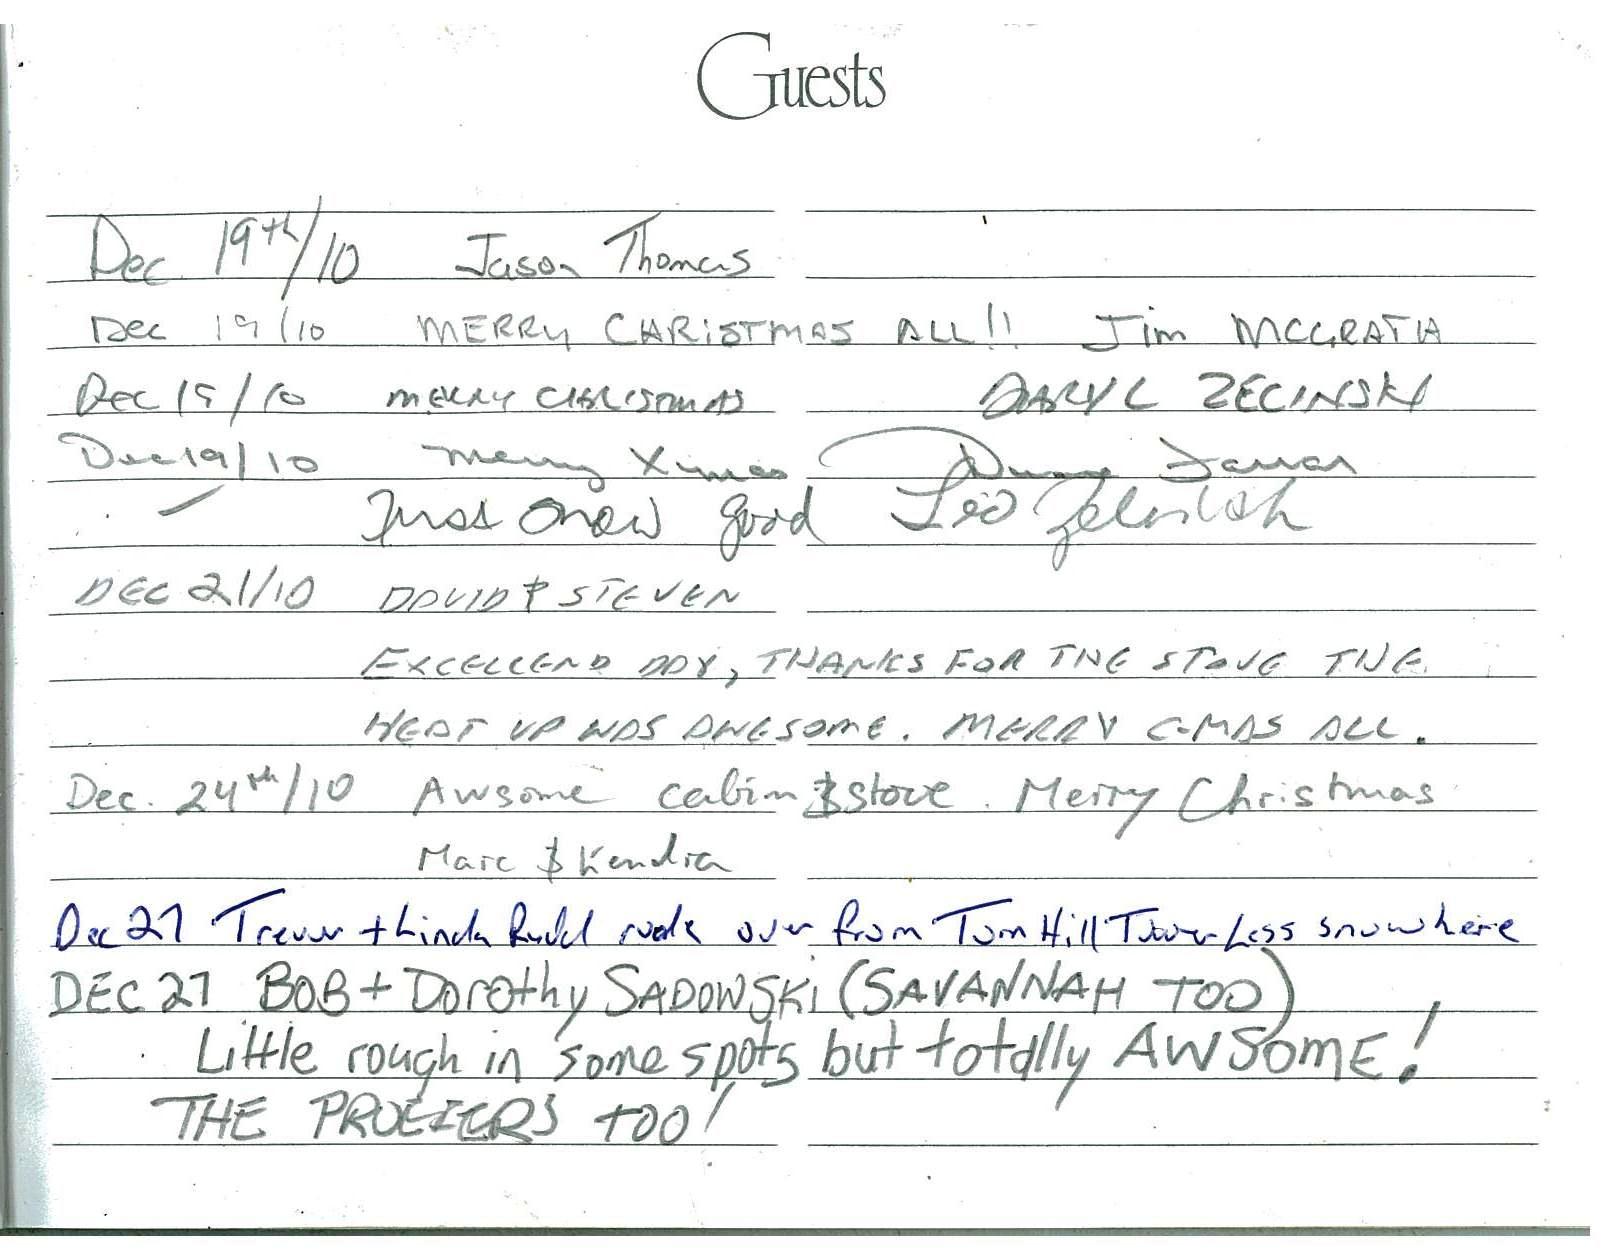 Guests
Dec 19th/10 Jason Thomas
Dec 19/10 MERRY CHRiSTMAS ALL!! Jim MCGRATH
Dec 19/10 MERRY CHRISTMAS DARYL ZECINSKI
Dec 19/10 Merry Xmas Duane
Trust Snow good Leo
DEC 21/10 DAVID & STEVEN
EXCELLEND DAY, THANKS FOR THE STOVE THE
HEAT UP WAS AWESOME. MERRY C-MAS ALL.
Dec. 24th/10 Awsome cabin & stove. Merry Christmas
Marc & Kendra
Dec 27 Trevor + Linda Rudd rode over from Tom Hill Tower Less snow here
DEC 27 BOB + Dorothy SADOWSKi (SAVANNAH TOO)
Little rough in some spots but totally AWSOME!
THE TOO!